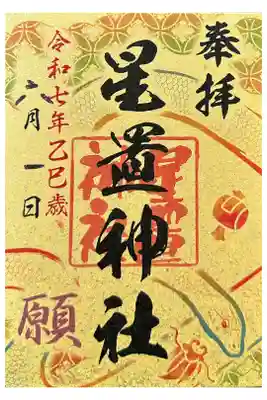 奉拝
星置神社
令和七年乙巳歳
六月一日
願